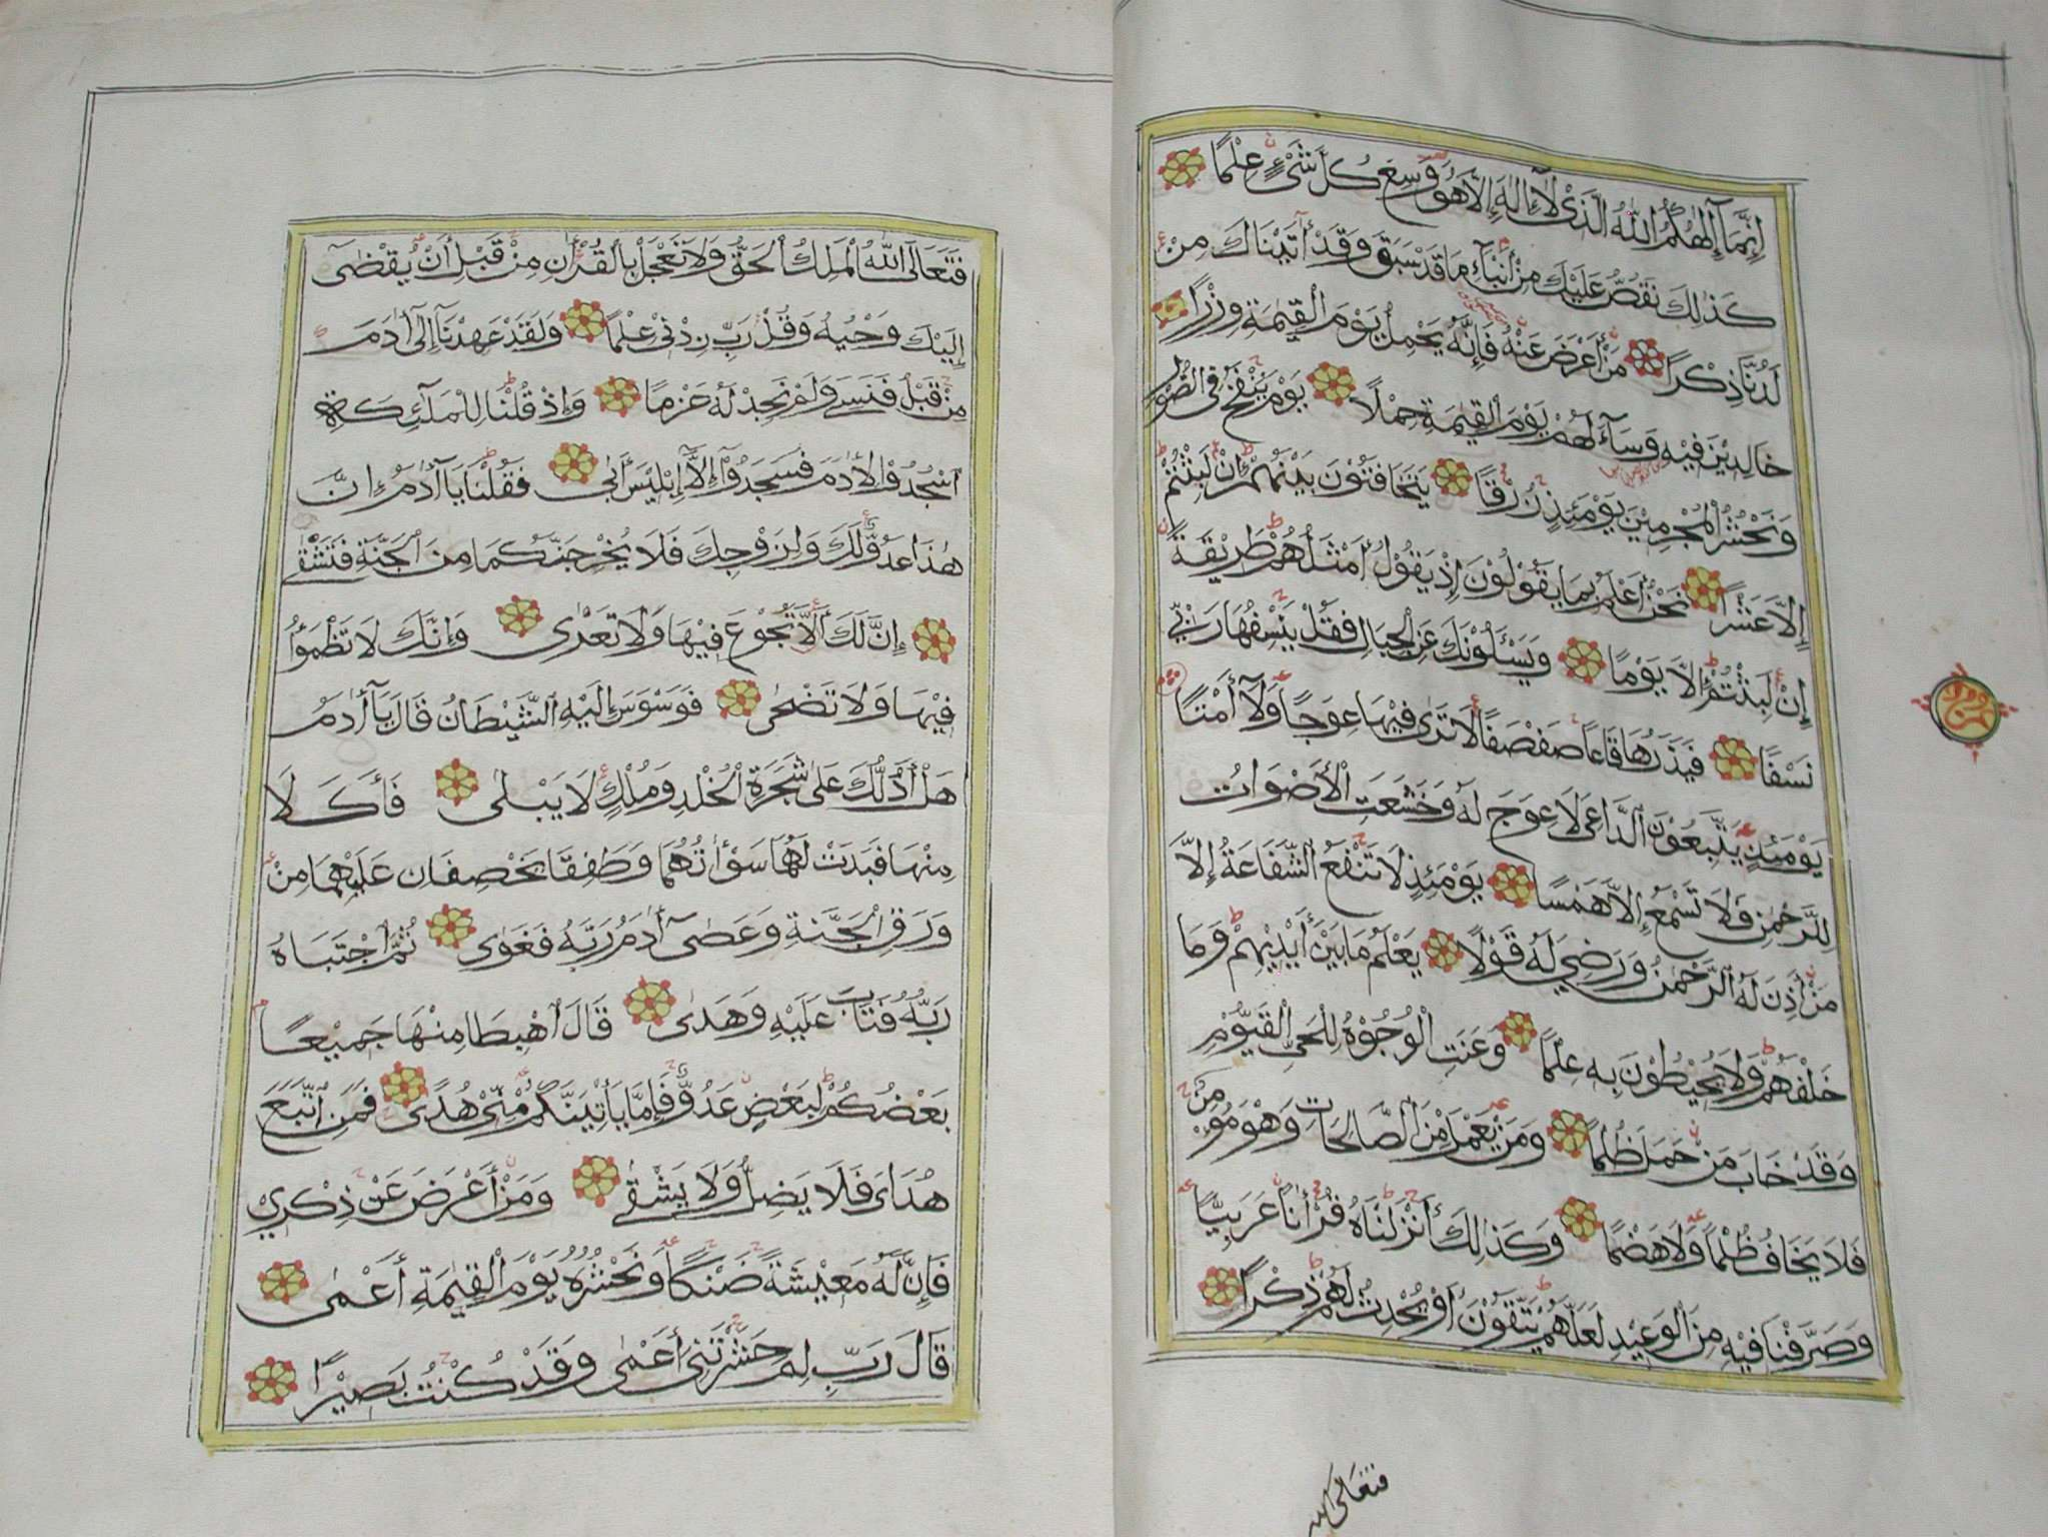 إِنَّمَآ إِلٰهُكُمُ اللّٰهُ الَّذِيْ لَآ إِلٰهَ إِلَّا هُوَ وَسِعَ كُلَّ شَيْءٍ عِلْمًا
كَذٰلِكَ نَقُصُّ عَلَيْكَ مِنْ أَنْبَآءِ مَا قَدْ سَبَقَ وَقَدْ أٰتَيْنَاكَ مِنْ
لَدُنَّا ذِكْرًا مَنْ أَعْرَضَ عَنْهُ فَإِنَّهُ يَحْمِلُ يَوْمَ الْقِيٰمَةِ وِزْرًا
خَالِدِيْنَ فِيْهِ وَسَآءَ لَهُمْ يَوْمَ الْقِيٰمَةِ حِمْلًا يَوْمَ يُنْفَخُ فِي الصُّوْرِ
وَنَحْشُرُ الْمُجْرِمِيْنَ يَوْمَئِذٍ زُرْقًا يَتَخَافَتُوْنَ بَيْنَهُمْ إِنْ لَبِثْتُمْ
إِلَّا عَشْرًا نَحْنُ أَعْلَمُ بِمَا يَقُوْلُوْنَ إِذْ يَقُوْلُ أَمْثَلُهُمْ طَرِيْقَةً
إِنْ لَبِثْتُمْ إِلَّا يَوْمًا وَيَسْئَلُوْنَكَ عَنِ الْجِبَالِ فَقُلْ يَنْسِفُهَا رَبِّيْ
نَسْفًا فَيَذَرُهَا قَاعًا صَفْصَفًا لَا تَرٰى فِيْهَا عِوَجًا وَلَآ أَمْتًا
يَوْمَئِذٍ يَتَّبِعُوْنَ الدَّاعِيَ لَا عِوَجَ لَهُ وَخَشَعَتِ الْأَصْوَاتُ
لِلرَّحْمٰنِ فَلَا تَسْمَعُ إِلَّا هَمْسًا يَوْمَئِذٍ لَا تَنْفَعُ الشَّفَاعَةُ إِلَّا
مَنْ أَذِنَ لَهُ الرَّحْمٰنُ وَرَضِيَ لَهُ قَوْلًا يَعْلَمُ مَا بَيْنَ أَيْدِيْهِمْ وَمَا
خَلْفَهُمْ وَلَا يُحِيْطُوْنَ بِهِ عِلْمًا وَعَنَتِ الْوُجُوْهُ لِلْحَيِّ الْقَيُّوْمِ
وَقَدْ خَابَ مَنْ حَمَلَ ظُلْمًا وَمَنْ يَعْمَلْ مِنَ الصَّالِحَاتِ وَهْوَ مُؤْمِنٌ
فَلَا يَخَافُ ظُلْمًا وَلَا هَضْمًا وَكَذٰلِكَ أَنْزَلْنَاهُ قُرْأٰنًا عَرَبِيًّا
وَصَرَّفْنَا فِيْهِ مِنَ الْوَعِيْدِ لَعَلَّهُمْ يَتَّقُوْنَ أَوْ يُحْدِثُ لَهُمْ ذِكْرًا
فتعالى الله
فَتَعَالَى اللّٰهُ الْمَلِكُ الْحَقُّ وَلَا تَعْجَلْ بِالْقُرْأٰنِ مِنْ قَبْلِ أَنْ يُقْضٰىٓ
إِلَيْكَ وَحْيُهُ وَقُلْ رَبِّ زِدْنِيْ عِلْمًا وَلَقَدْ عَهِدْنَآ إِلٰىٓ أٰدَمَ
مِنْ قَبْلُ فَنَسِيَ وَلَمْ نَجِدْ لَهُ عَزْمًا وَإِذْ قُلْنَا لِلْمَلٰٓئِكَةِ
اسْجُدُوْا لِأٰدَمَ فَسَجَدُوْٓا إِلَّآ إِبْلِيْسَ أَبٰى فَقُلْنَا يَآ أٰدَمُ إِنَّ
هٰذَا عَدُوٌّ لَكَ وَلِزَوْجِكَ فَلَا يُخْرِجَنَّكُمَا مِنَ الْجَنَّةِ فَتَشْقٰى
إِنَّ لَكَ أَلَّا تَجُوْعَ فِيْهَا وَلَا تَعْرٰى وَإِنَّكَ لَا تَظْمَؤُا
فِيْهَا وَلَا تَضْحٰى فَوَسْوَسَ إِلَيْهِ الشَّيْطَانُ قَالَ يَآ أٰدَمُ
هَلْ أَدُلُّكَ عَلٰى شَجَرَةِ الْخُلْدِ وَمُلْكٍ لَا يَبْلٰى فَأَكَلَا
مِنْهَا فَبَدَتْ لَهُمَا سَوْأٰتُهُمَا وَطَفِقَا يَخْصِفَانِ عَلَيْهِمَا مِنْ
وَرَقِ الْجَنَّةِ وَعَصٰىٓ أٰدَمُ رَبَّهُ فَغَوٰى ثُمَّ اجْتَبَاهُ
رَبُّهُ فَتَابَ عَلَيْهِ وَهَدٰى قَالَ اهْبِطَا مِنْهَا جَمِيْعًا
بَعْضُكُمْ لِبَعْضٍ عَدُوٌّ فَإِمَّا يَأْتِيَنَّكُمْ مِنِّيْ هُدًى فَمَنِ اتَّبَعَ
هُدَايَ فَلَا يَضِلُّ وَلَا يَشْقٰى وَمَنْ أَعْرَضَ عَنْ ذِكْرِيْ
فَإِنَّ لَهُ مَعِيْشَةً ضَنْكًا وَنَحْشُرُهُ يَوْمَ الْقِيٰمَةِ أَعْمٰى
قَالَ رَبِّ لِمَ حَشَرْتَنِيْ أَعْمٰى وَقَدْ كُنْتُ بَصِيْرًا